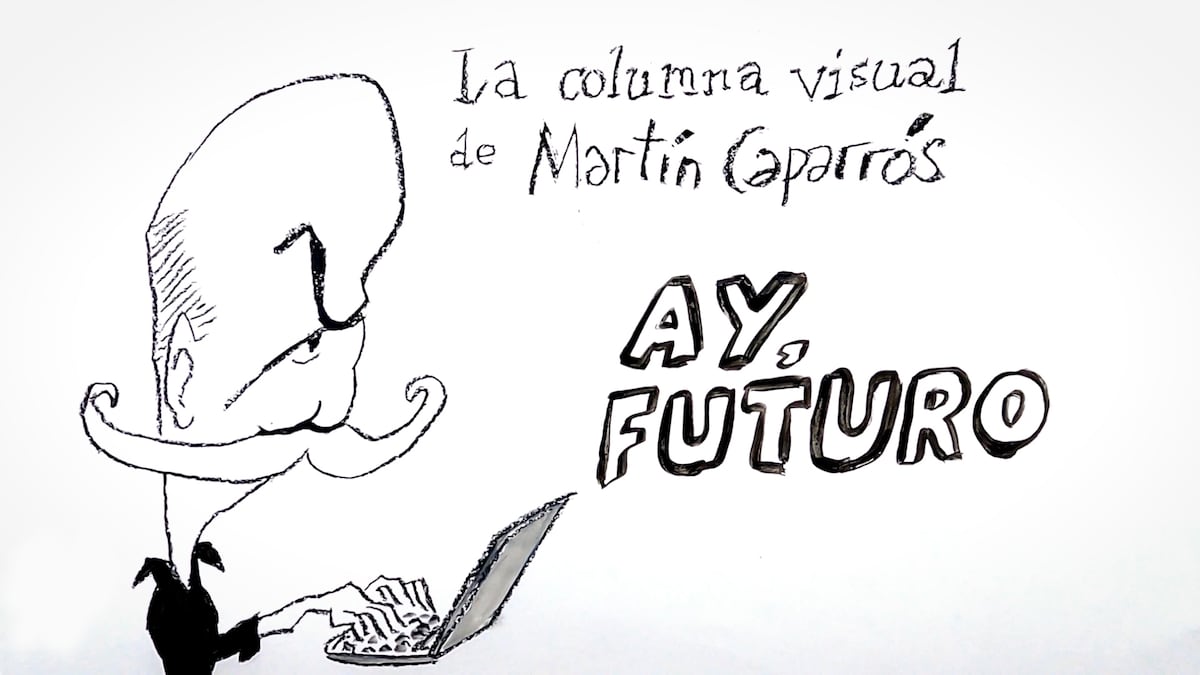 La columna visual
de Martín Caparrós
AY,
FUTURO